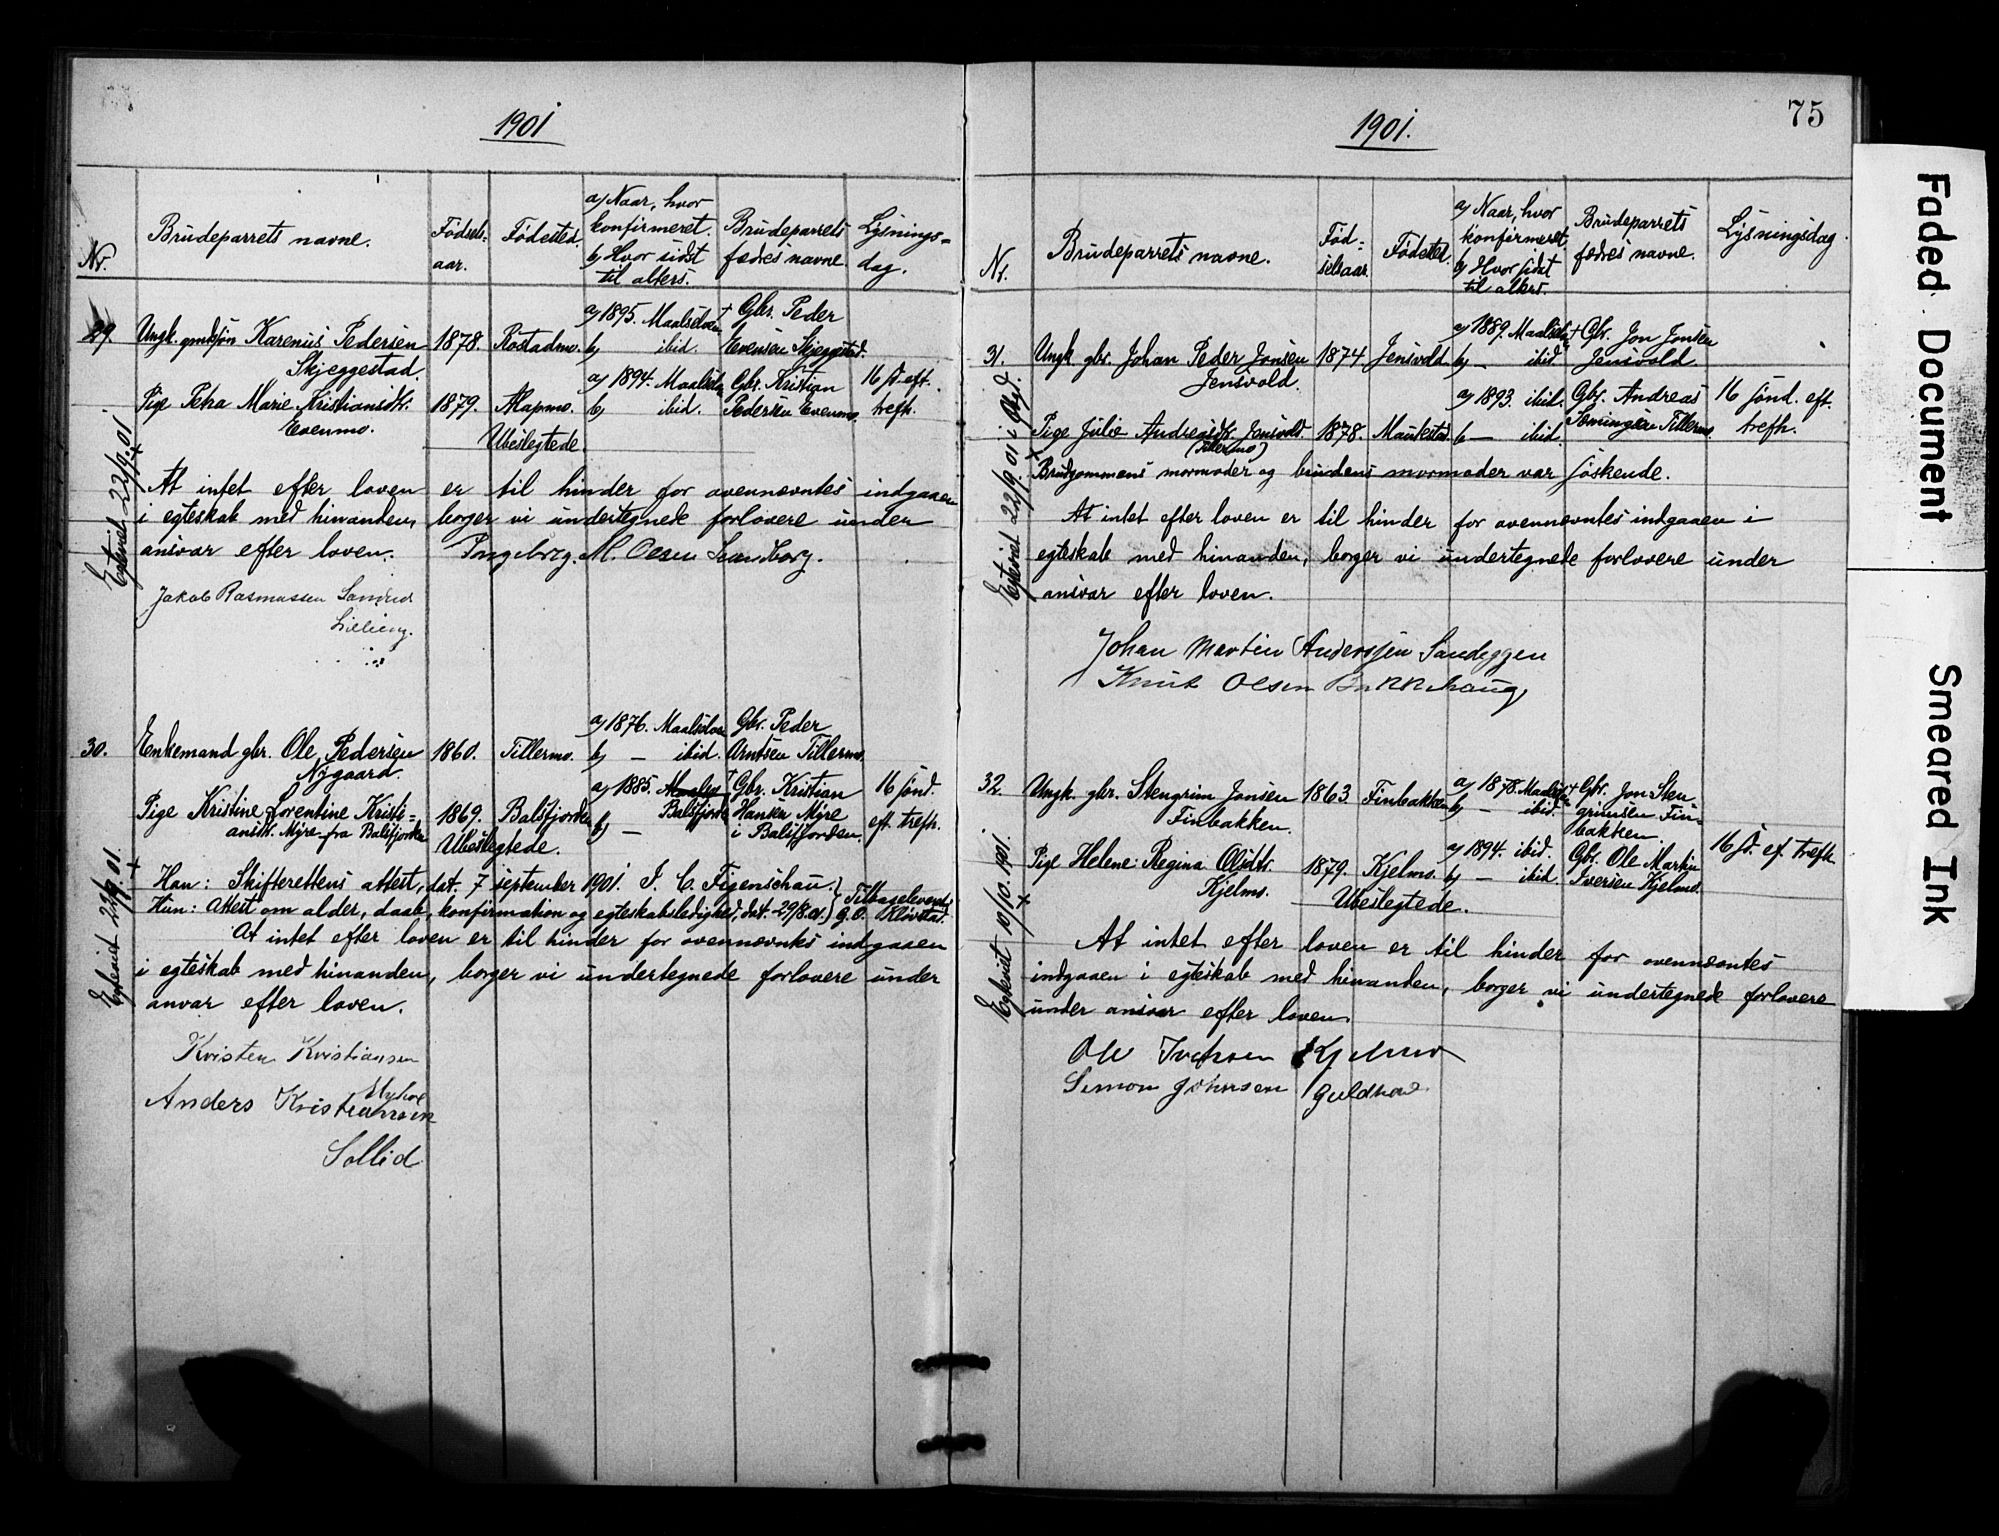 1901
Nr.
Brudeparrets navne.
Fødsels-
aar.
Fødested.
a) Naar, hvor
konfirmeret.
b) Hvor sidst
til alters.
Brudeparrets
fædres navne.
Lysnings-
dag.
29.
Ungk. gmdsøn Karenius Pedersen
Skjeggestad.
1878.
Rostadmo.
a) 1895. Maalselven
b) ibid.
+ Gbr. Peder
Evensen Skjeggestad.
Pige Petra Marie Kristiansdtr.
Evenmo.
1879.
Akapmo.
a) 1894. Maalselv
b) ibid.
Gbr. Kristian
Pedersen Evenmo.
16 s. eft.
trefh.
Ubeslegtede.
Egteviet 22/9.01
At intet efter loven er til hinder for ovennevntes indgaaen
i egteskab med hinanden, borger vi undertegnede forlovere under
ansvar efter loven. Ingeborg. M. Olsen Lundborg.
Jakob Rasmussen
30.
Enkemand gbr. Ole Pedersen
Nygaard.
1860.
Tillermo.
a) 1876. Maalselven
b) — ibid.
Gbr. Peder
Arntsen Tillermo.
Pige Kristine Lorentine Kristi-
ansdtr. Myre fra Balsfjorden
1869.
Balsfjorden
a) 1885. Maalse
Balsfjorden
b) —
+ Gbr. Kristian
Hansen Myre
i Balsfjorden.
16 sønd.
eft. trefh.
Ubeslegtede.
Egteviet 22/9 01.
Han: Skifterettens attest, dat. 7 september 1901. J. C. Figenschau.
Hun: Attest om alder, daab, konfirmation og egteskabsledighed, dat. 29/8.01.
Tilbageleveret
G.O. Kløvstad.
At intet efter loven er til hinder for ovennevntes indgaaen
i egteskab med hinanden, borger vi undertegnede forlovere under
anvar efter loven.
Kristen Kristiansen
Anders Kristiansen
Sollid
1901.
75
Nr.
Brudeparrets navne.
Fød-
selsaar.
Fødested.
a) Naar, hvor
konfirmeret
b) Hvor sidst
til alters.
Brudeparrets
fædres navne.
Lysningsdag.
31.
Ungk. gbr. Johan Peder Jonsen
Jensvold.
1874
Jensvold.
a) 1889. Maalselv
b) — ibid.
+ Gbr. Jon Jonsen
Jensvold.
Pige Julie Andreasdtr. Jensvold
(Tillermo)
1878.
Maukstad.
a) 1893. ibid.
b) — ibid.
Gbr. Andreas
Tillermo.
16 sønd. eft.
trefh.
Egteviet 22/9 01 i
Brudgommens mormoder og brudens mormoder var søskende.
At intet efter loven er til hinder for ovennevntes indgaaen i
egteskab med hinanden, borger vi undertegnede forlovere under
ansvar efter loven.
Johan Martin Anderssen Sandeggen
Knut Olsen Bakkehaug,
32.
Ungk. gbr. Stengrim Jonsen
Finbakken.
1863
Finbakken
a) 1878. Maalselv
b) — ibid.
+ Gbr. Jon Sten
grimsen Fin-
bakken.
Pige Helene Regina Olsdtr.
Kjelmo.
1879.
Kjelmo.
a) 1894. ibid.
b) — ibid.
Gbr. Ole Martin
Iversen Kjelmo.
16 s. ef. trefh.
Ubeslegtede.
Egteviet 10/10.1901.
At intet efter loven er til hinder for ovennevntes
indgaaen i egteskab med hinanden, borger vi undertegnede forlovere
under ansvar efter loven.
Ole Iversen Kjelmo
Simon Johnsen Guldhav
Faded Document
Smeared Ink